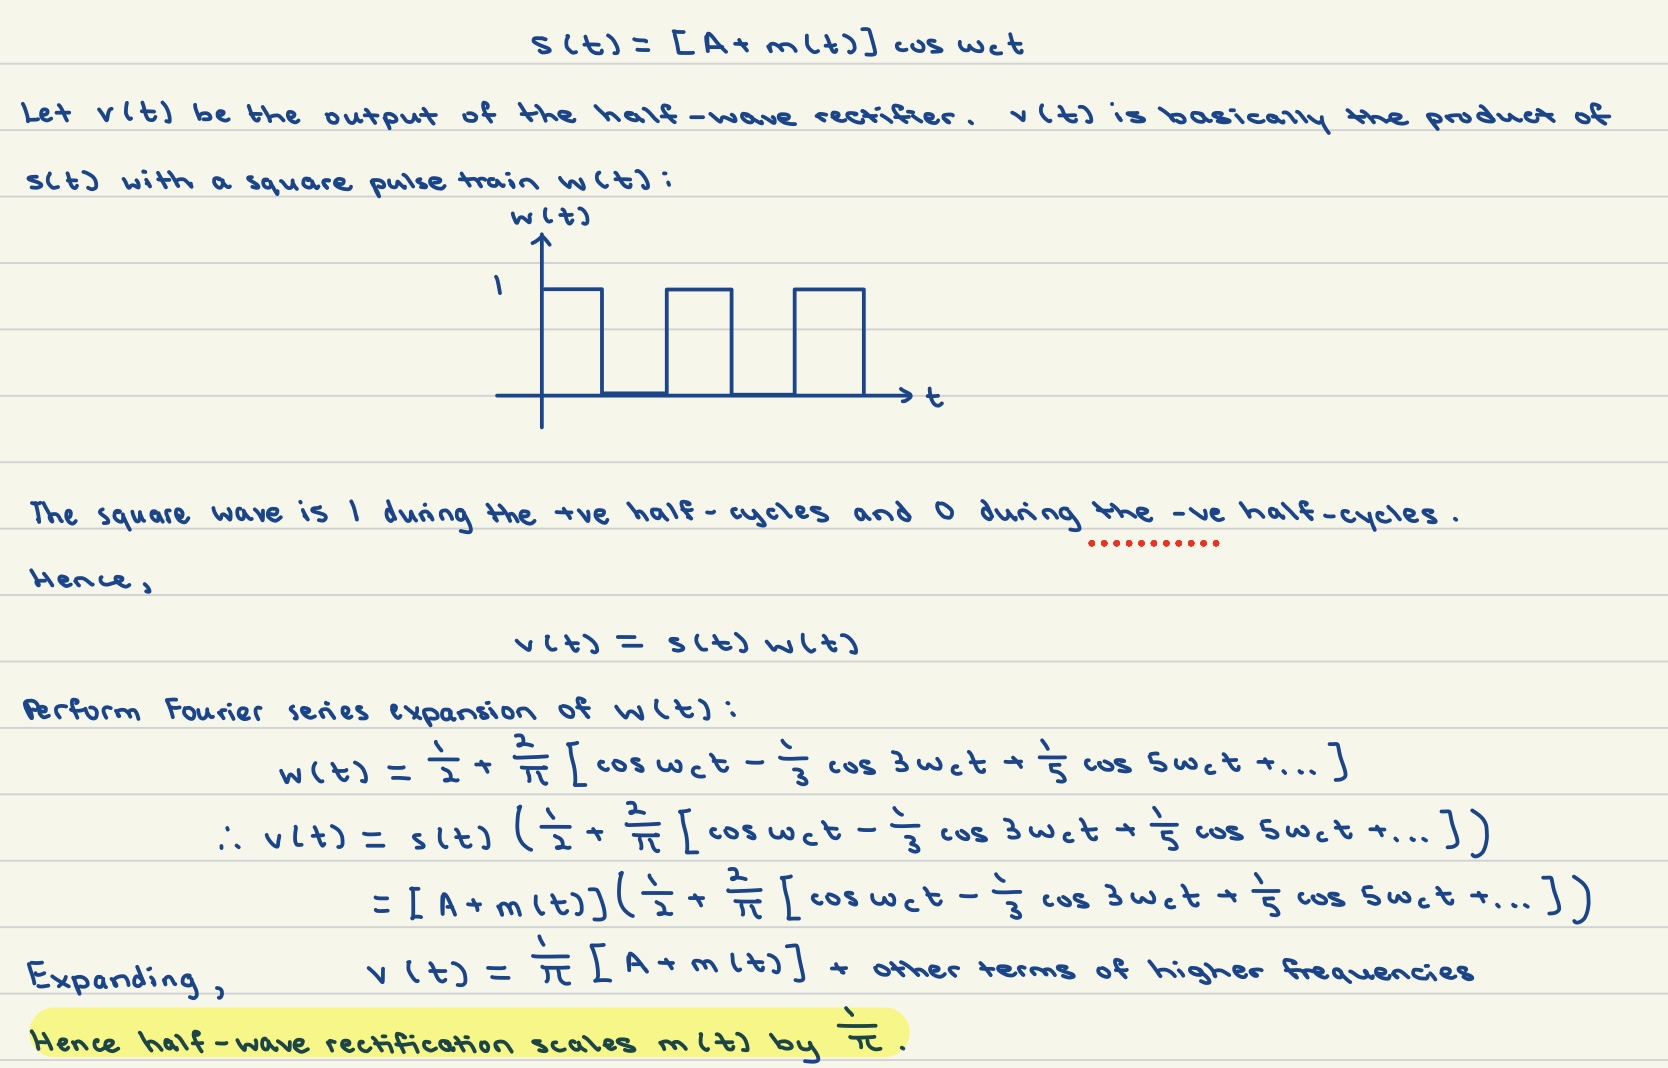 s(t) = [A + m(t)] cos ω_c t
Let v(t) be the output of the half-wave rectifier. v(t) is basically the product of
s(t) with a square pulse train w(t):
w(t)
1
t
The square wave is 1 during the +ve half-cycles and 0 during the -ve half-cycles.
Hence,
v(t) = s(t) w(t)
Perform Fourier series expansion of w(t):
w(t) = 1/2 + 2/π [cos ω_c t - 1/3 cos 3ω_c t + 1/5 cos 5ω_c t +...]
∴ v(t) = s(t) (1/2 + 2/π [cos ω_c t - 1/3 cos 3ω_c t + 1/5 cos 5ω_c t +...])
= [A + m(t)] (1/2 + 2/π [cos ω_c t - 1/3 cos 3ω_c t + 1/5 cos 5ω_c t +...])
Expanding, v(t) = 1/π [A + m(t)] + other terms of higher frequencies
Hence half-wave rectification scales m(t) by 1/π.